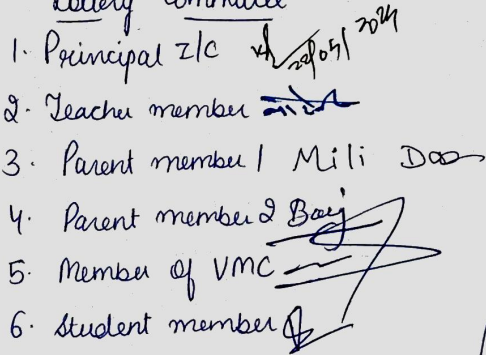 Lottery Committee
1. Principal I/C 22/05/2024
2. Teacher member
3. Parent member 1 Mili Das
4. Parent member 2
5. Member of VMC
6. Student member